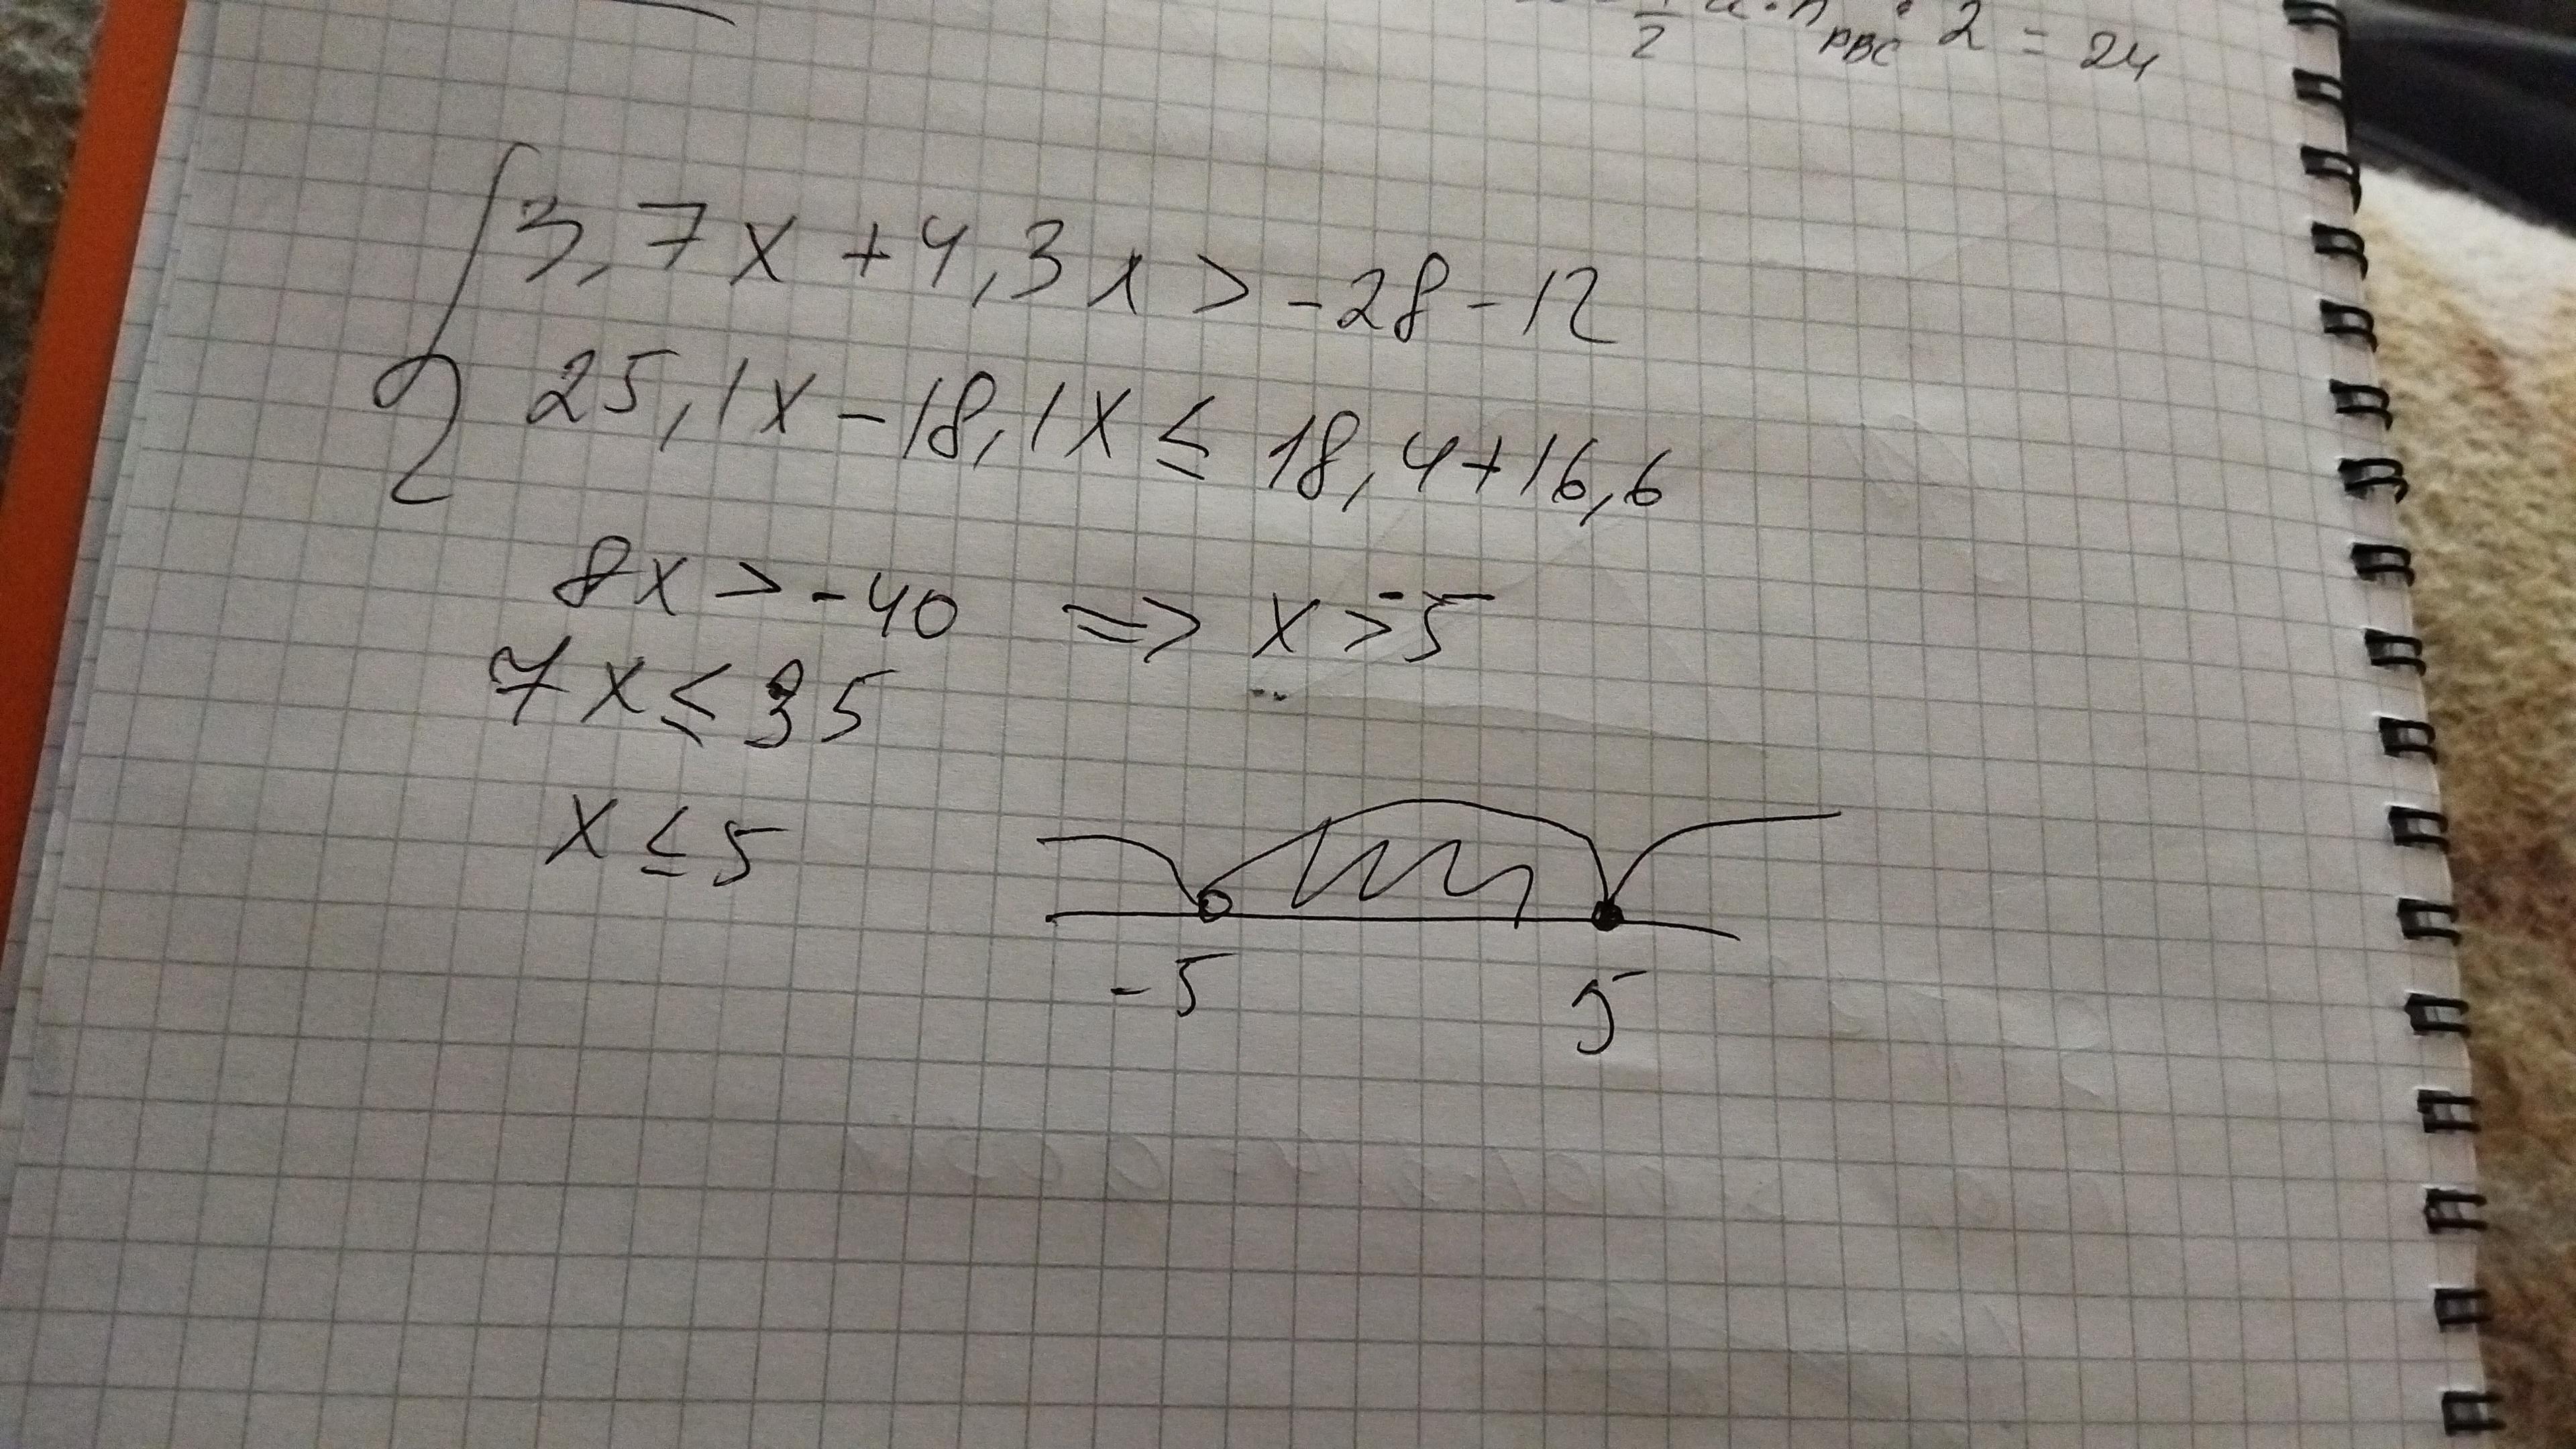 1/2 · h_ABC · 2 = 24
{ 3,7x + 4,3x > -28 - 12
25,1x - 18,1x ≤ 18,4 + 16,6
8x > -40 => x > -5
7x ≤ 35
x ≤ 5
-5 5